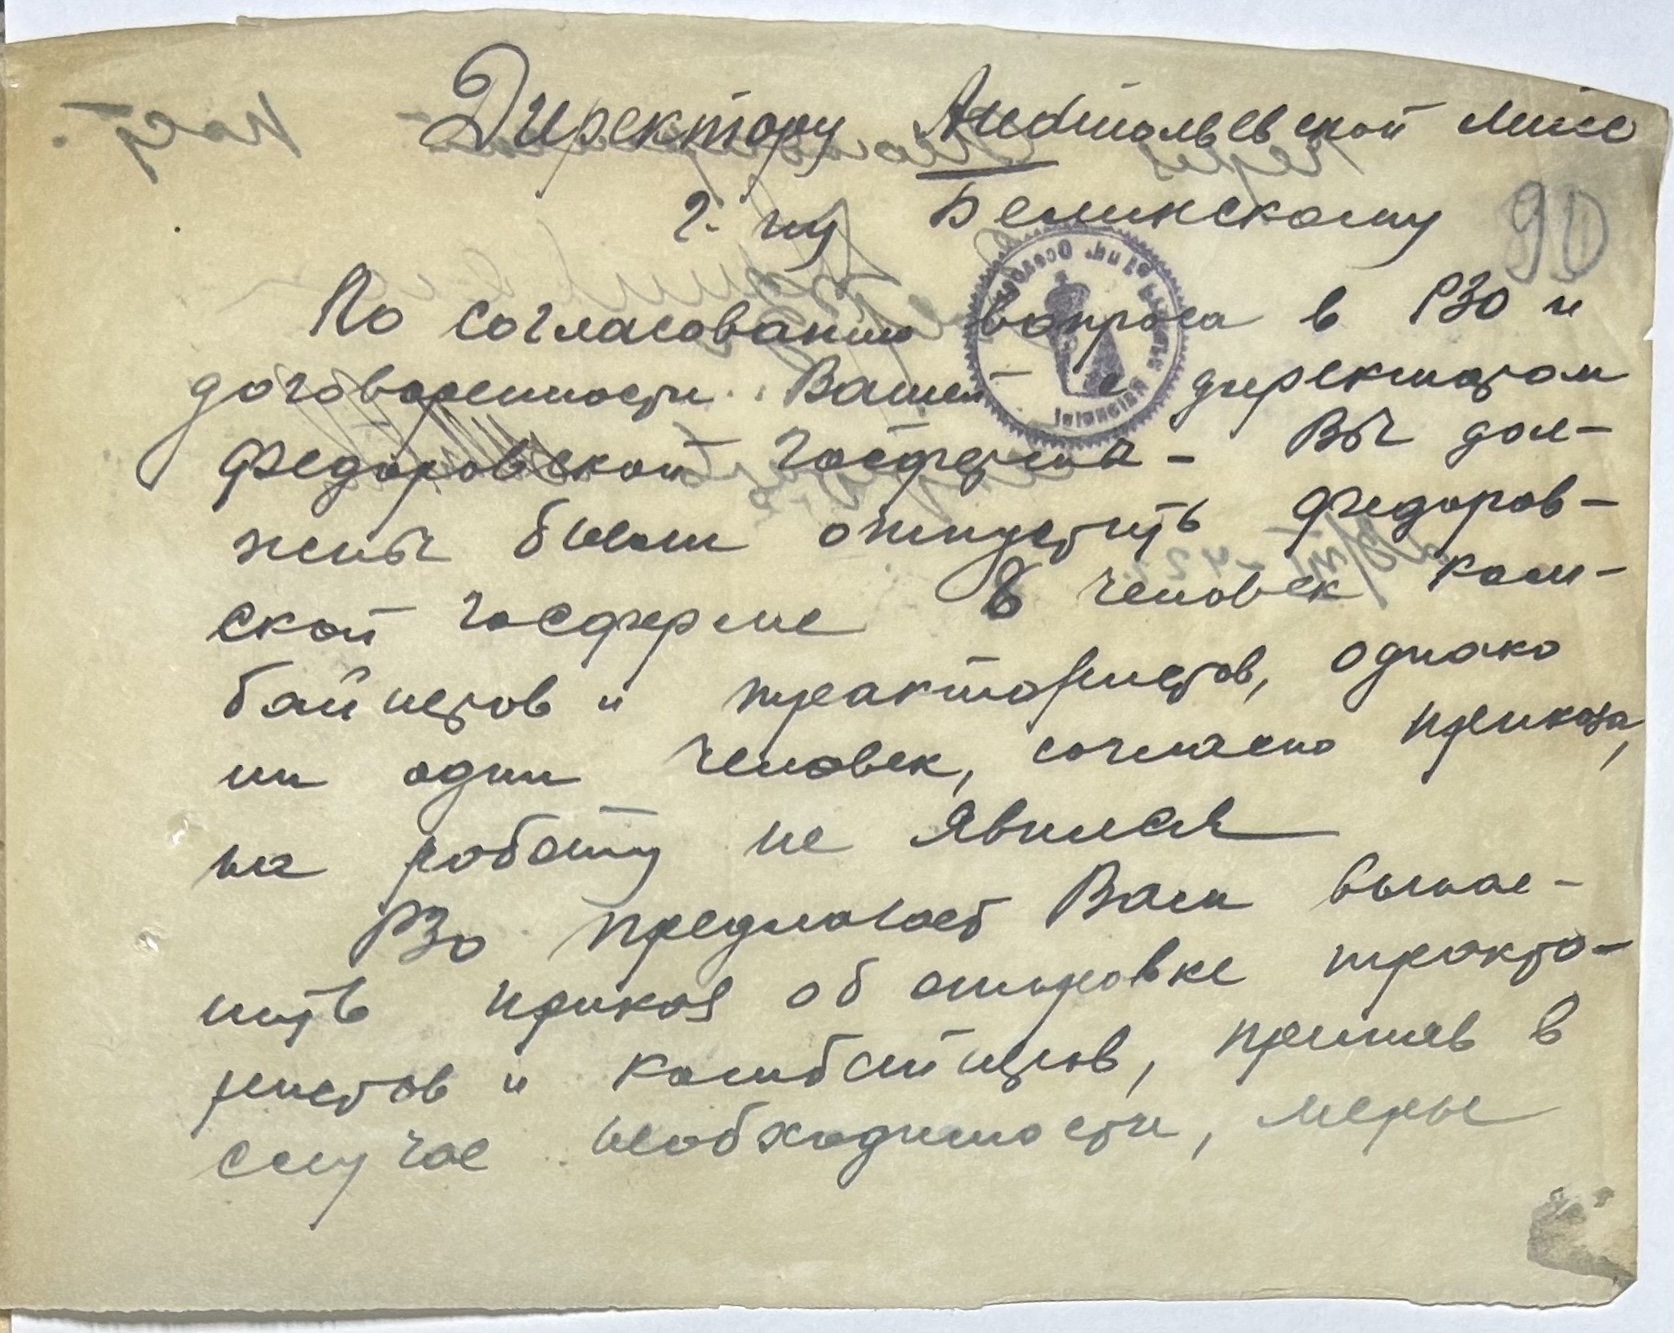 Директору Анатольевской МТС
г-ну Белинскому
90
По согласованию вопроса в РЗО и
договоренности Вашей с директором
Федоровской Госферма - Вы дол-
жны были отпустить Федоров-
ской госферме 8 человек ком-
байнеров и трактористов, однако
ни один человек, согласно приказа,
на работу не явился
РЗО предлагает Вам выпол-
нить приказ об отправке тракто-
ристов и комбайнеров, приняв в
случае необходимости, меры